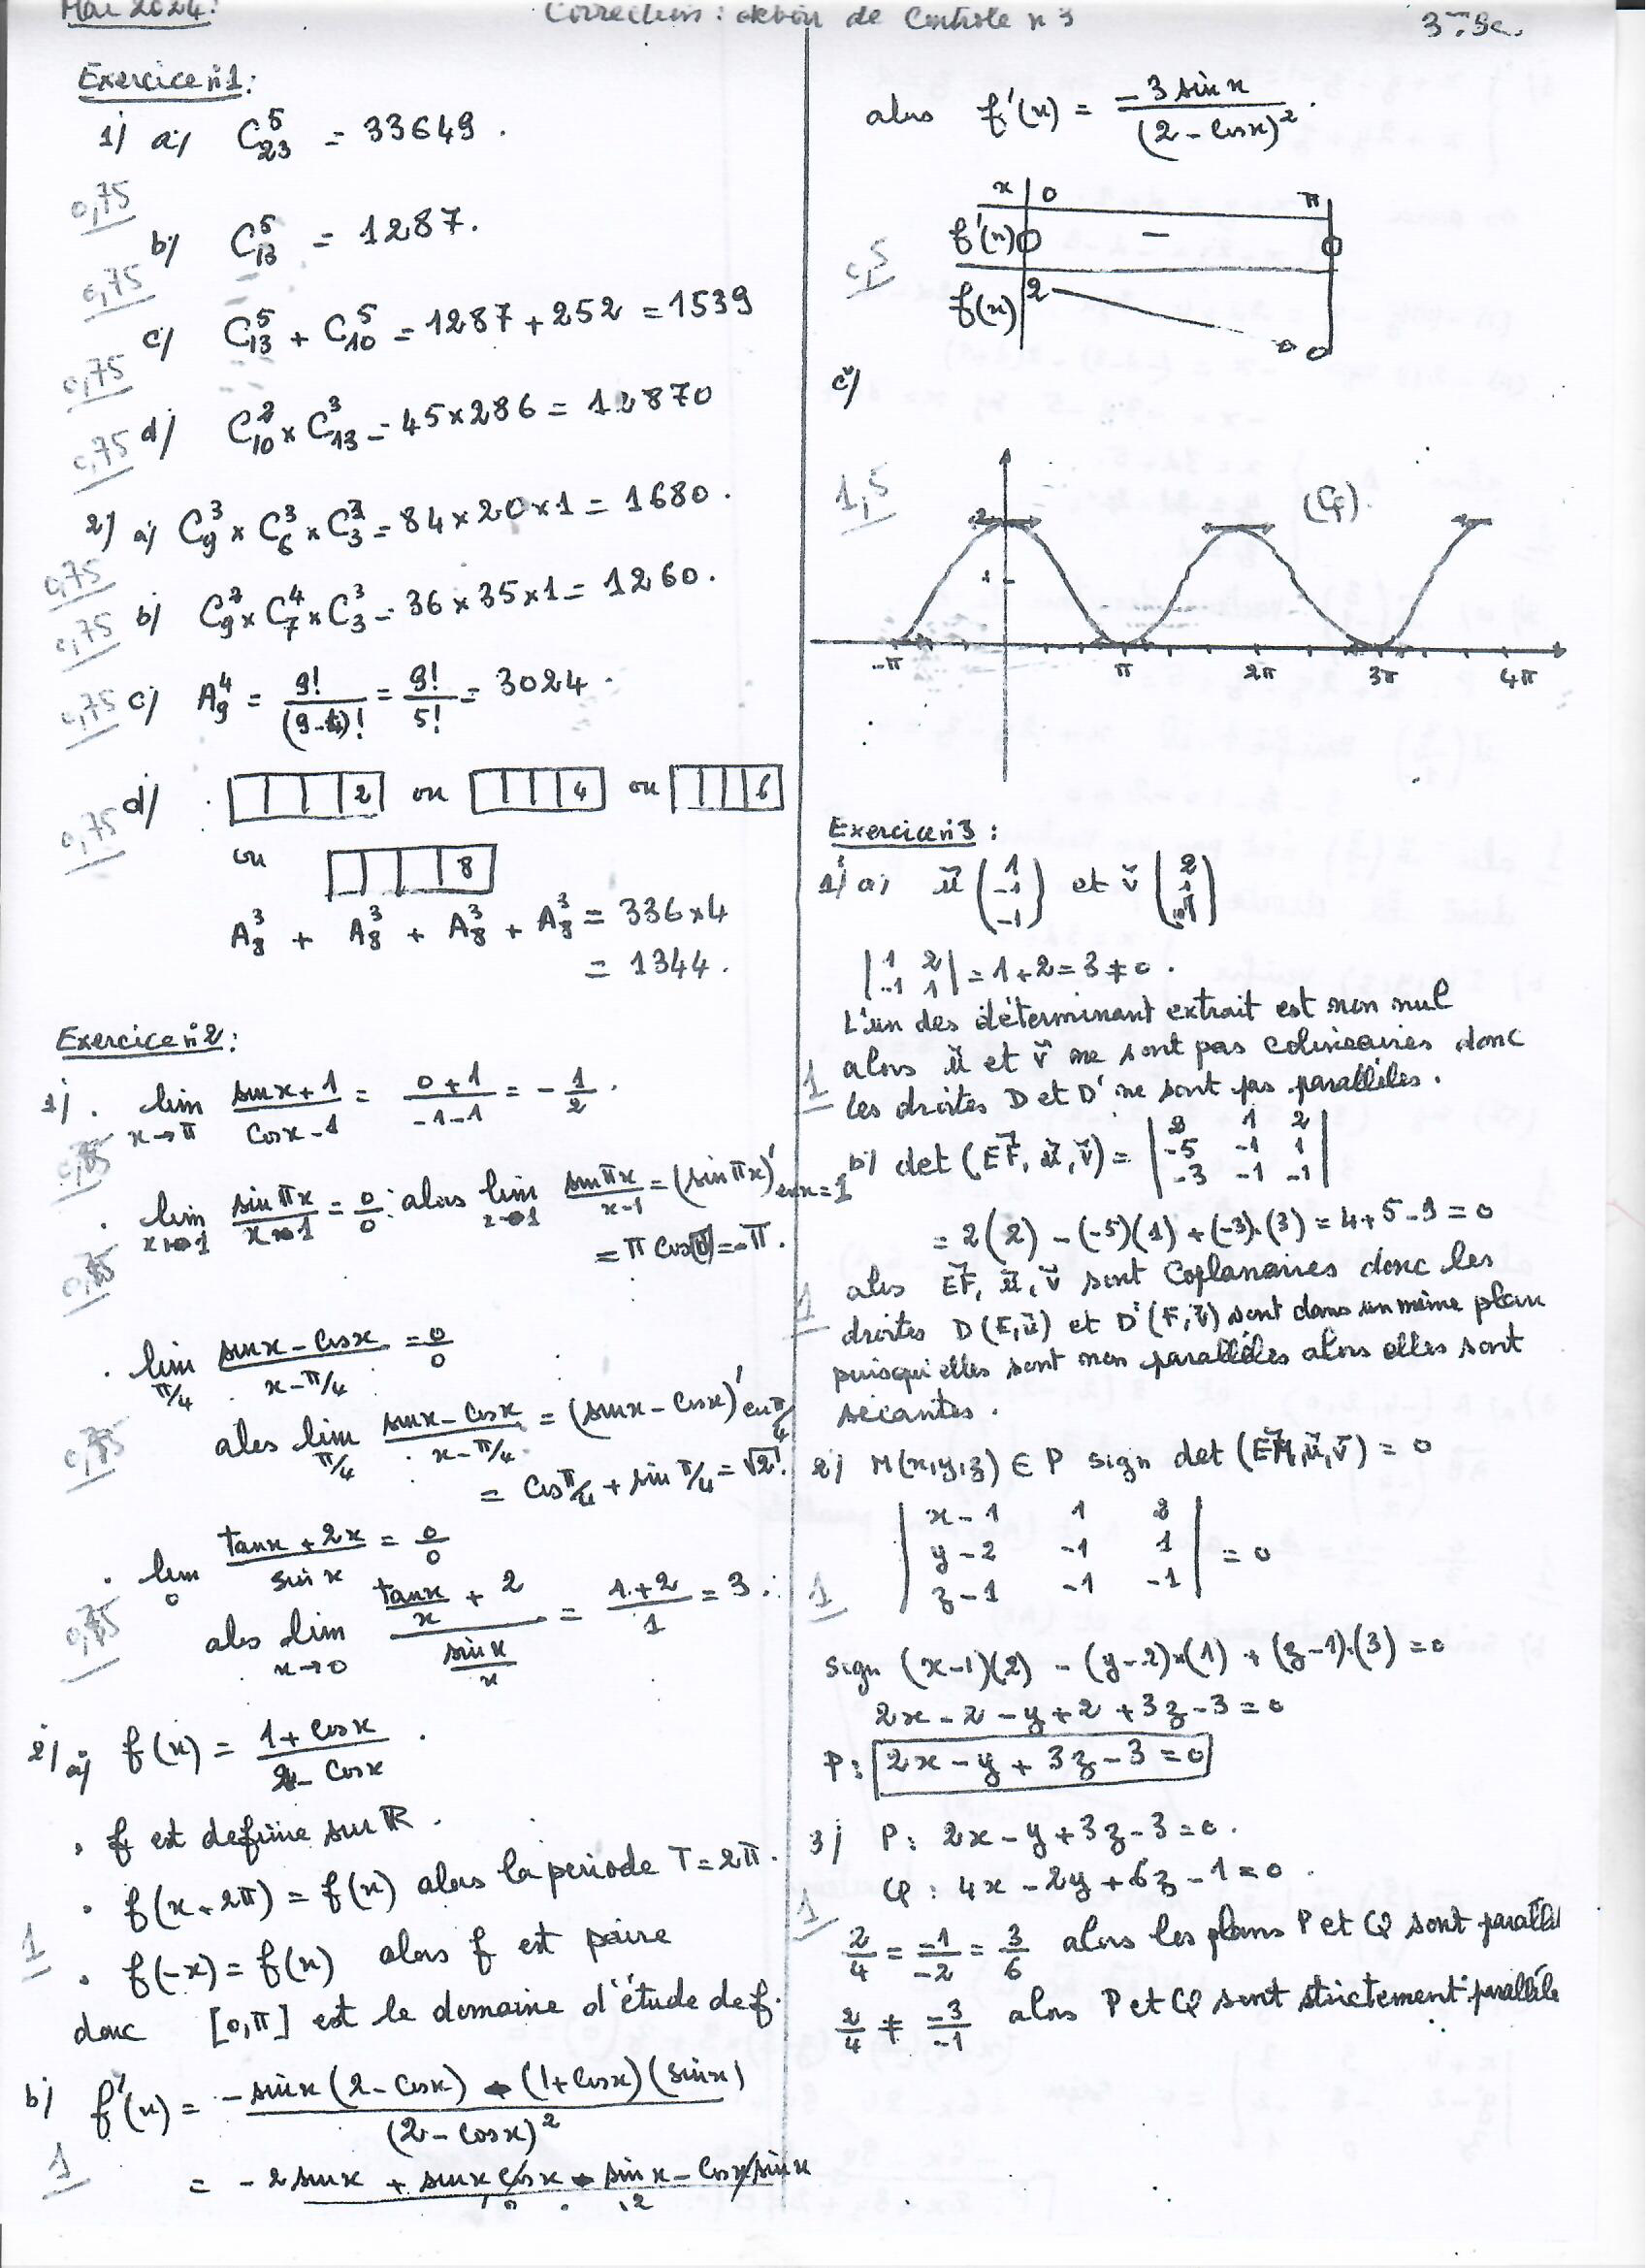 Mai 2024.
Correction : devoir de Contrôle n°3
3ème Sc.
Exercice n°1 :
1/ a/ C₂₃⁵ = 33649 .
0,75
b/ C₁₃⁵ = 1287.
0,75
c/ C₁₃⁵ + C₁₀⁵ = 1287 + 252 = 1539
0,75
d/ C₁₀² × C₁₃³ = 45 × 286 = 12870
0,75
2/ a/ C₉³ × C₆³ × C₃³ = 84 × 20 × 1 = 1680 .
0,75
b/ C₉² × C₇⁴ × C₃³ = 36 × 35 × 1 = 1260 .
0,75
c/ A₉⁴ = 9!/(9-4)! = 9!/5! = 3024 .
0,75
d/ 2 ou 4 ou 6
0,75
ou 8
A₈³ + A₈³ + A₈³ + A₈³ = 336 × 4
= 1344 .
Exercice n°2 :
1/ . lim x→π (sin x + 1)/(cos x - 1) = (0+1)/(-1-1) = -1/2 .
0,75
. lim x→1 sin πx/(x-1) = 0/0 : alors lim x→1 sin πx/(x-1) = (sin πx)' en x=1
= π cos π = -π .
0,75
. lim π/4 (sin x - cos x)/(x - π/4) = 0/0
alors lim π/4 (sin x - cos x)/(x - π/4) = (sin x - cos x)' en π/4
0,75
= cos π/4 + sin π/4 = √2 .
. lim 0 (tan x + 2x)/sin x = 0/0
alors lim x→0 (tan x/x + 2)/(sin x/x) = (1+2)/1 = 3 .
0,75
2/ a/ f(x) = (1 + cos x)/(2 - cos x) .
. f est definie sur ℝ .
. f(x+2π) = f(x) alors la periode T = 2π .
1
. f(-x) = f(x) alors f est paire
donc [0,π] est le domaine d'étude de f.
b/ f'(x) = (-sin x (2 - cos x) - (1 + cos x)(sin x))/(2 - cos x)²
1
= -2 sin x + sin x cos x - sin x - cos x sin x
alors f'(x) = -3 sin x/(2 - cos x)² .
x 0 π
f'(x) 0 - 0
f(x) 2 0
c/
1,5
2
(Cf)
1
-π π 2π 3π 4π
Exercice n°3 :
1/ a/ u (1 -1 -1) et v (2 1 -1)
|1 2 ; -1 1| = 1 + 2 = 3 ≠ 0 .
L'un des déterminant extrait est non nul
alors u et v ne sont pas colineaires donc
1
les droites D et D' ne sont pas parallèles .
b/ det (EF, u, v) = |2 1 2 ; -5 -1 1 ; -3 -1 -1|
= 2(2) - (-5)(1) + (-3).(3) = 4 + 5 - 9 = 0
alors EF, u, v sont Coplanaires donc les
1
droites D(E,u) et D'(F,v) sont dans un même plan
puisqu'elles sont non parallèles alors elles sont
sécantes .
2/ M(x,y,z) ∈ P sign det (EM, u, v) = 0
|x-1 1 2 ; y-2 -1 1 ; z-1 -1 -1| = 0
1
sign (x-1)(2) - (y-2)×(1) + (z-1).(3) = 0
2x - 2 - y + 2 + 3z - 3 = 0
P : 2x - y + 3z - 3 = 0
3/ P : 2x - y + 3z - 3 = 0 .
Q : 4x - 2y + 6z - 1 = 0 .
1
2/4 = -1/-2 = 3/6 alors les plans P et Q sont parallè
2/4 ≠ -3/-1 alors P et Q sont strictement parallèle